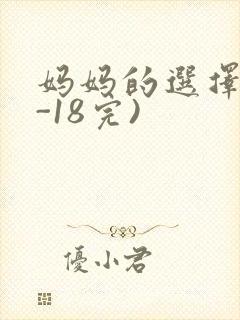 妈妈的選擇
-18完)
優小君